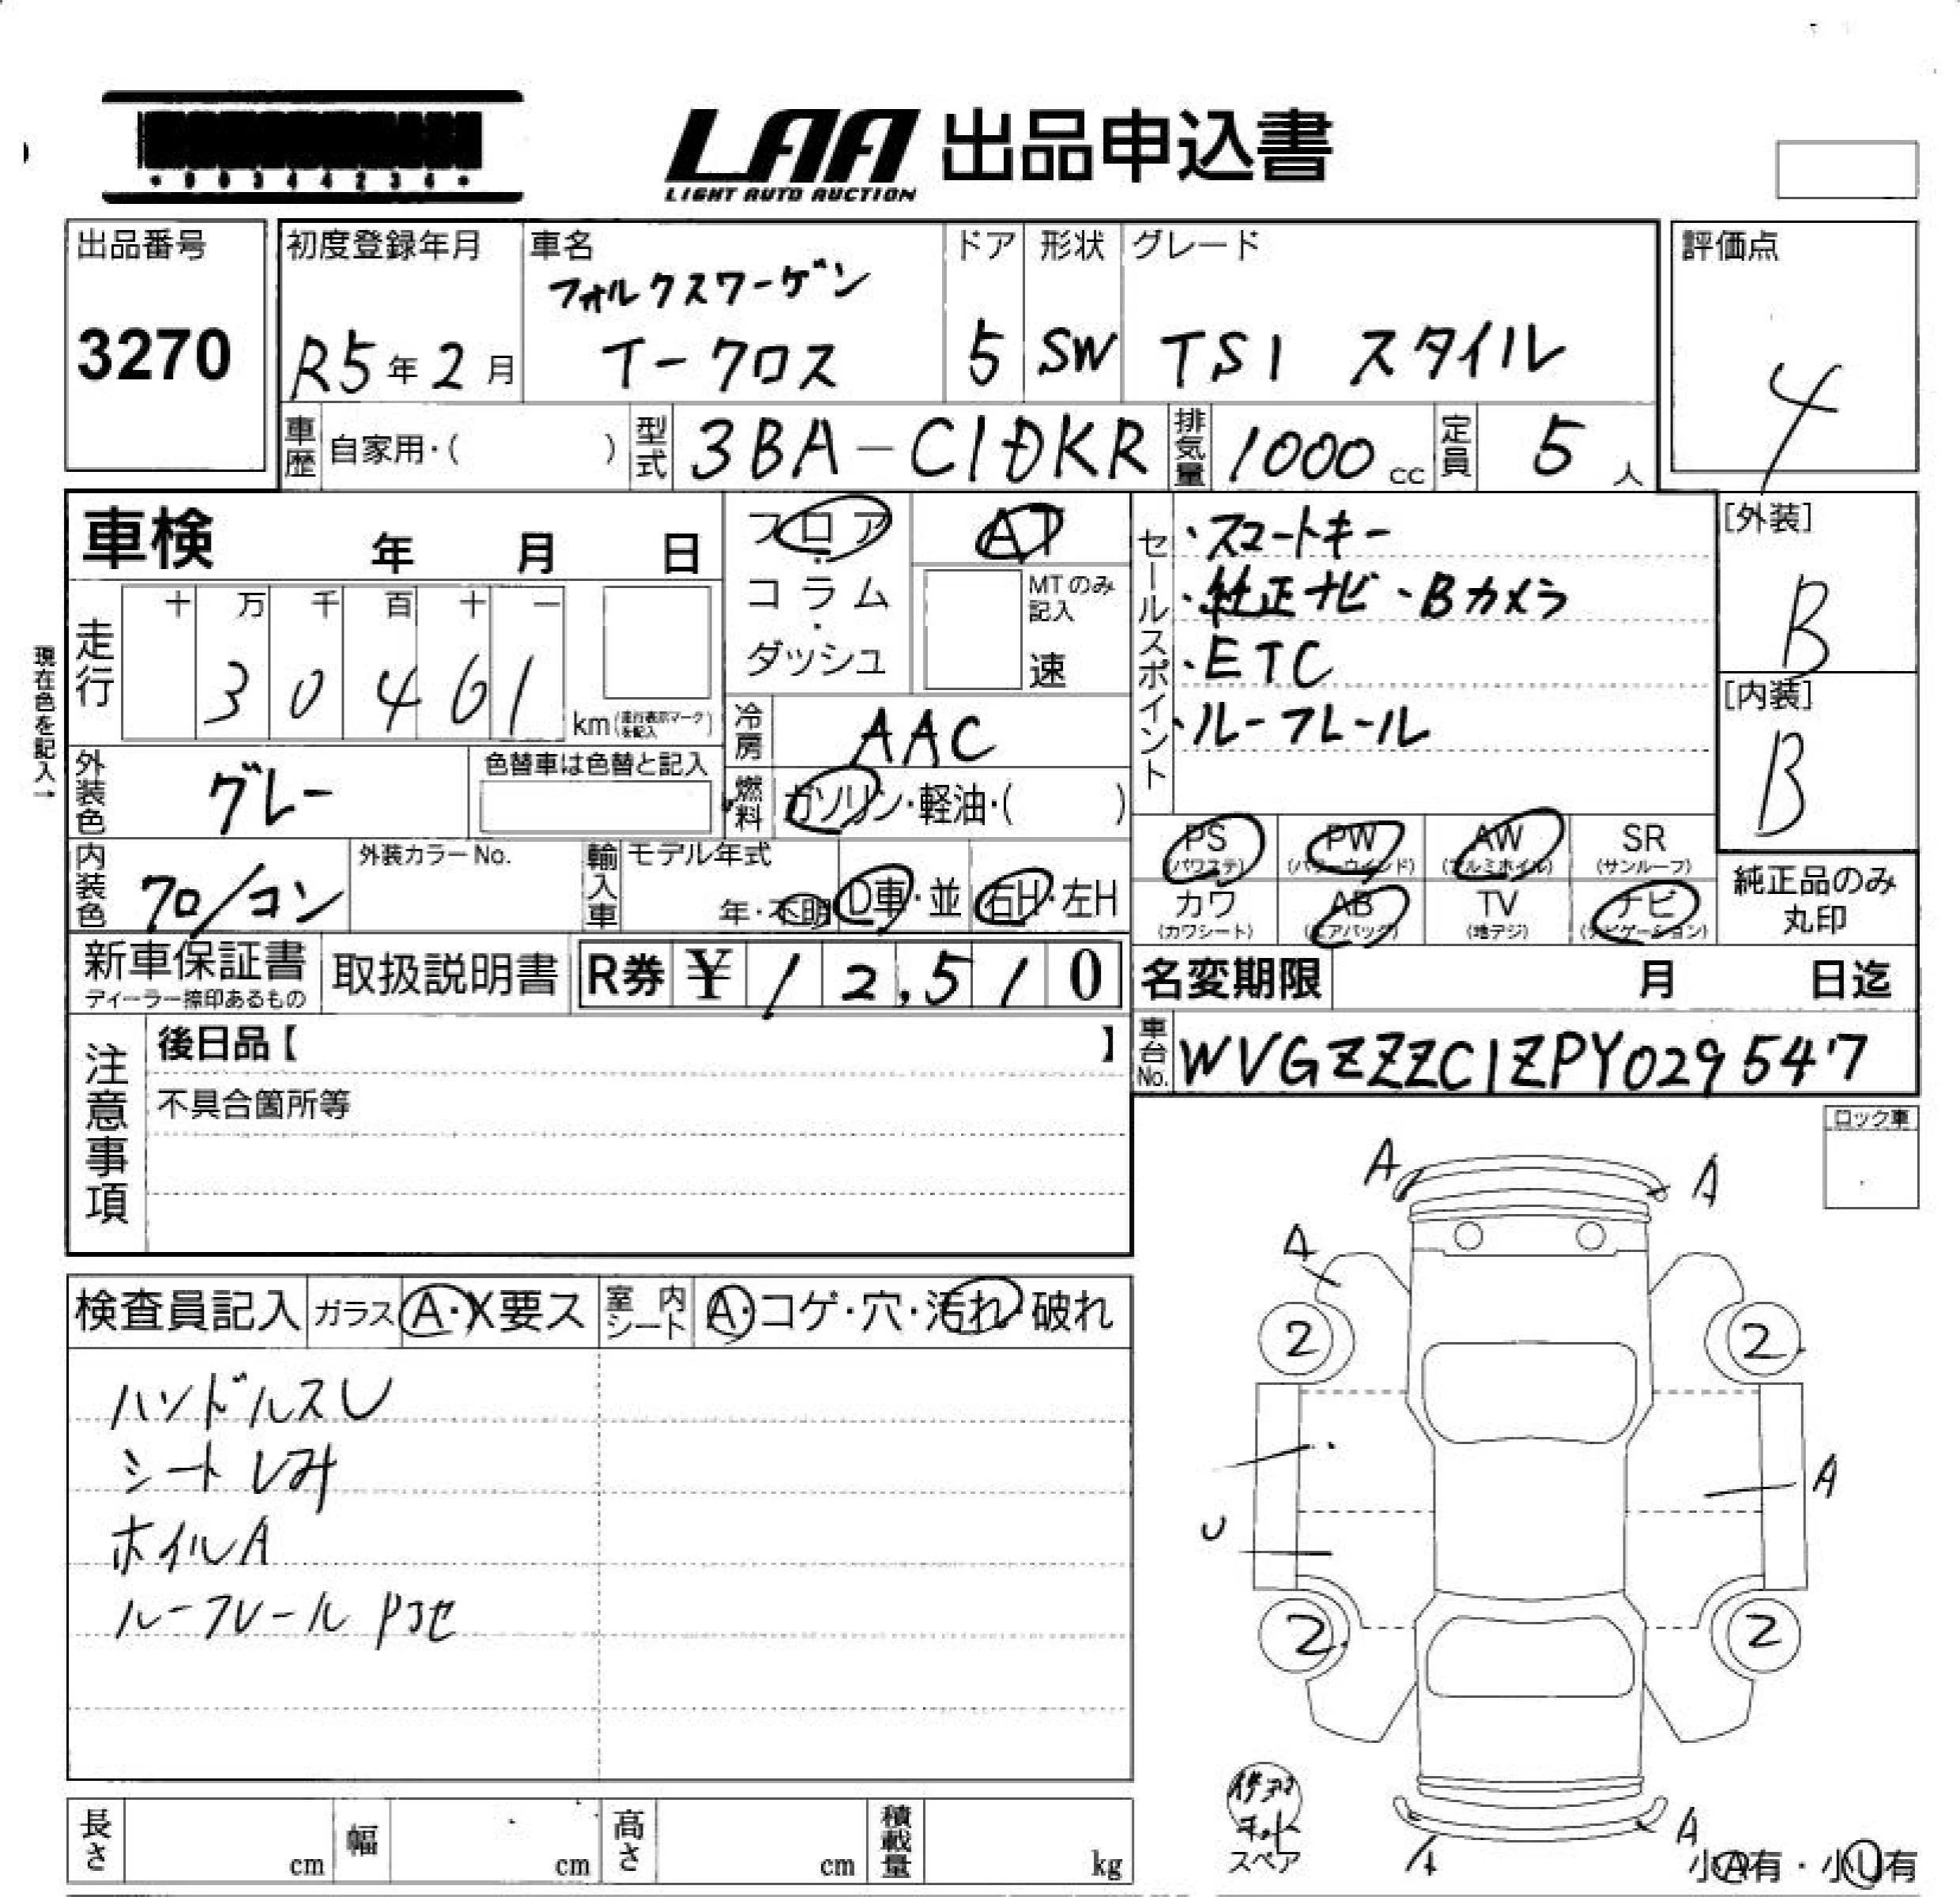 LAA 出品申込書
LIGHT AUTO AUCTION
出品番号
3270
初度登録年月
R5年2月
車名
フォルクスワーゲン
T-クロス
ドア
5
形状
SW
グレード
TSI スタイル
評価点
4
車歴 自家用・( )
型式 3BA-C1DKR
排気量 1000cc
定員 5人
車検 年 月 日
フロア・コラム・ダッシュ
AT
MTのみ記入
速
セールスポイント
・スマートキー
・純正ナビ・Bカメラ
・ETC
・ルーフレール
[外装]
B
[内装]
B
現在色を記入→
走行
十 万 千 百 十 一
3 0 4 6 1
km(走行表示マークを記入)
冷房 AAC
外装色 グレー
色替車は色替と記入
燃料 ガソリン・軽油・( )
内装色 クロ/コン
外装カラーNo.
輸入車
モデル年式
年・不明
D車・並
右H・左H
PS (パワステ)
PW (パワーウインド)
AW (アルミホイル)
SR (サンルーフ)
カワ (カワシート)
AB (エアバック)
TV (地デジ)
ナビ (ナビゲーション)
純正品のみ
丸印
新車保証書
ディーラー捺印あるもの
取扱説明書
R券 ¥12,510
名変期限 月 日迄
車台No. WVGZZZC1ZPY029547
注意事項
後日品【 】
不具合箇所等
ロック車
検査員記入
ガラス A・X要ス
室内シート A・コゲ・穴・汚れ・破れ
ハンドルスU
シートしみ
ホイルA
ルーフレール
A
A
A
2
2
A
U
2
2
スペア
A
A
小A有・小U有
長さ cm
幅 cm
高さ cm
積載量 kg